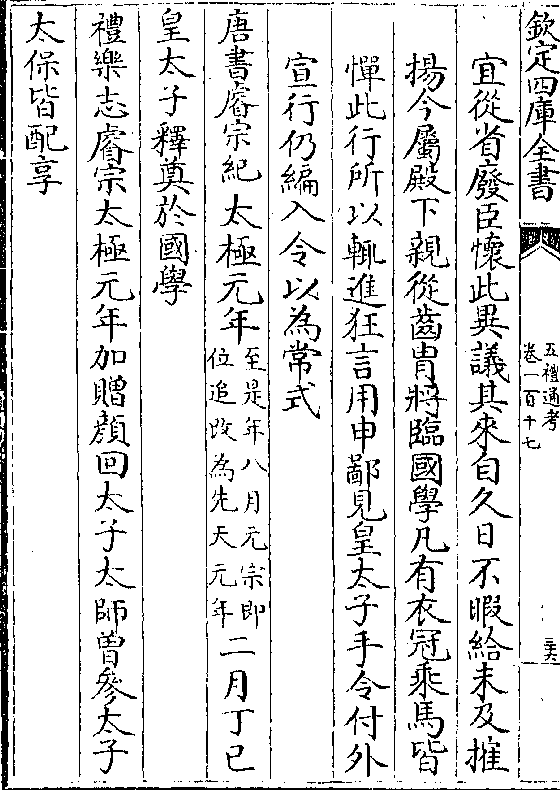 欽定四庫全書
五禮通考
卷一百十七
宜從省廢臣懷此異議其來自久日不暇給未及摧
揚今屬殿下親從齒胄將臨國學凡有衣冠乘馬皆
憚此行所以輒進狂言用申鄙見皇太子手令付外
宣行仍編入令以為常式
唐書睿宗紀太極元年至是年八月元宗即位追改為先天元年二月丁已
皇太子釋奠於國學
禮樂志睿宗太極元年加贈顏回太子太師曽參太子
太保皆配享